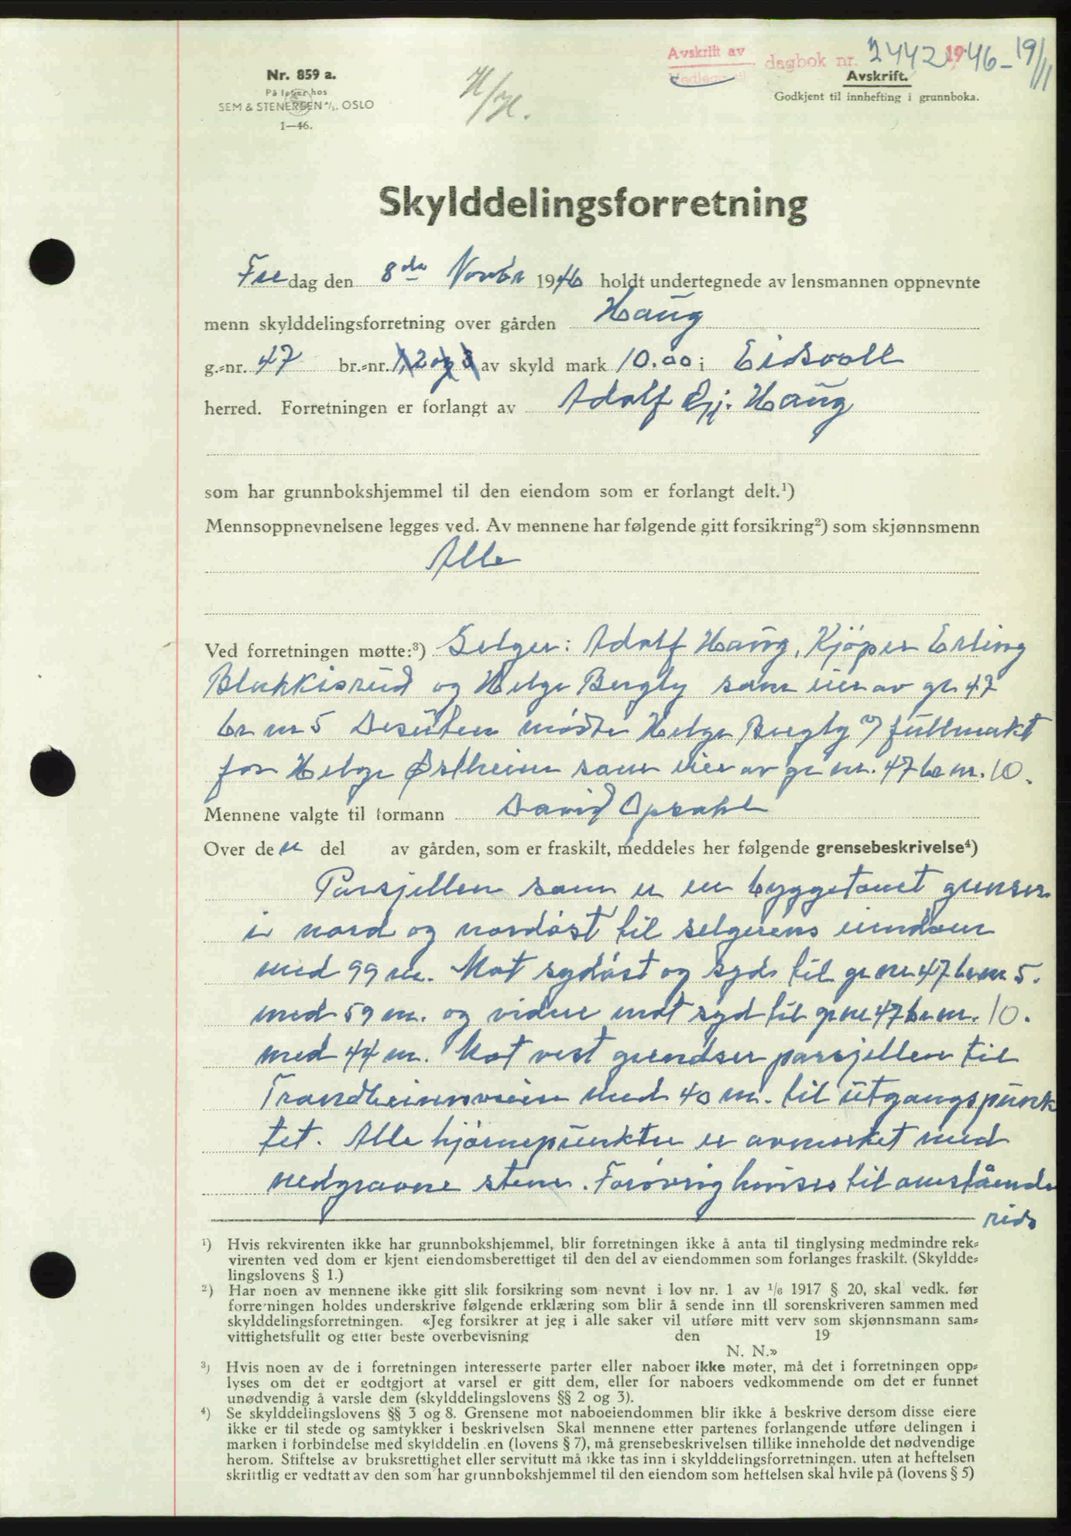 Avskrift av dagbok nr. 2442 1946 - 19/11
Vedlegg til
Nr. 859 a.
På lager hos
SEM & STENERSEN A/S. OSLO
1—46.
Avskrift.
Godkjent til innhefting i grunnboka.
Skylddelingsforretning
Fredag den 8de Novbr 1946 holdt undertegnede av lensmannen oppnevnte
menn skylddelingsforretning over gården Haug
g.-nr. 47 br.-nr. 1, 2 og 3 av skyld mark 10.00 i Eidsvoll
herred. Forretningen er forlangt av Adolf Haug
som har grunnbokshjemmel til den eiendom som er forlangt delt.¹)
Mennsoppnevnelsene legges ved. Av mennene har følgende gitt forsikring²) som skjønnsmenn
Alle
Ved forretningen møtte:³) Selger: Adolf Haug, Kjöper Erling
Blakkisrud og Helge Bergly som eier av gr 47
br nr 5 Desuten mödte Helge Bergly fullmakt
for Helge Østheim som eier av gr nr. 47 br nr. 10.
Mennene valgte til formann David Opsahl
Over den del av gården, som er fraskilt, meddeles her følgende grensebeskrivelse⁴)
Parsjellen som er en byggetomt grenser
i nord og nordöst til selgerens eiendom
med 99 m. Mot sydöst og syd til gr nr 47 br nr 5.
med 59 m. og videre mot syd til gr nr 47 br nr. 10.
med 44 m. Mot vest grendser parsjellen til
Trondheimsveien med 40 m. til utgangspunk
tet. Alle hjörnepunkter er avmerket med
nedgravne stener. Forövrig henvises til omstående
side
¹) Hvis rekvirenten ikke har grunnbokshjemmel, blir forretningen ikke å anta til tinglysing medmindre rek-
virenten ved dom er kjent eiendomsberettiget til den del av eiendommen som forlanges fraskilt. (Skyldde-
lingslovens § 1.)
²) Har noen av mennene ikke gitt slik forsikring som nevnt i lov nr. 1 av 1/6 1917 § 20, skal vedk. før
forretningen holdes underskrive følgende erklæring som blir å sende inn til sorenskriveren sammen med
skylddelingsforretningen. «Jeg forsikrer at jeg i alle saker vil utføre mitt verv som skjønnsmann sam-
vittighetsfullt og etter beste overbevisning den 19
N. N.»
³) Hvis noen av de i forretningen interesserte parter eller naboer ikke møter, må det i forretningen opp-
lyses om det er godtgjort at varsel er gitt dem, eller for naboers vedkommende om det er funnet
unødvendig å varsle dem (skylddelingslovens §§ 2 og 3).
⁴) Se skylddelingslovens §§ 3 og 8. Grensene mot naboeiendommen blir ikke å beskrive dersom disse eiere
ikke er til stede og samtykker i beskrivelsen Skal mennene etter partenes forlangende utføre delingen i
marken i forbindelse med skylddelin en (lovens § 7), må grensebeskrivelsen tillike inneholde det nødvendige
herom. Stiftelse av bruksrettighet eller servitutt må ikke tas inn i skylddelingsforretningen. uten at heftelsen
skriftlig er vedtatt av den som har grunnbokshjemmel til den eiendom som heftelsen skal hvile på (lovens § 5)